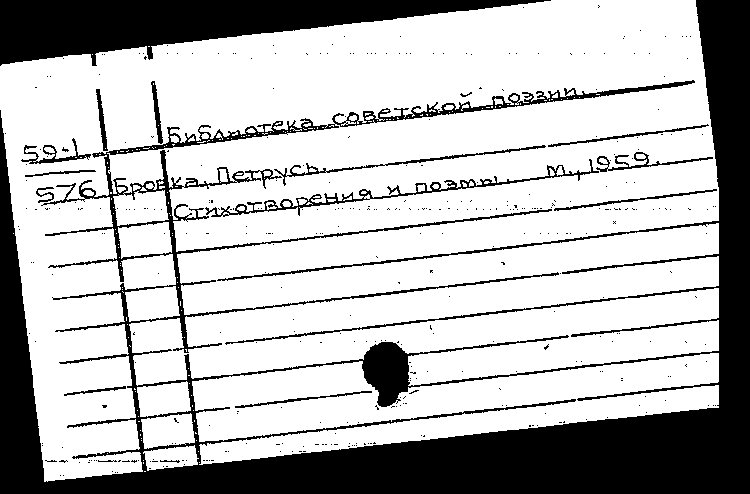 Библиотека советской поэзии.
59-1
576 Бровка, Петрусь.
Стихотворения и поэмы. М., 1959.